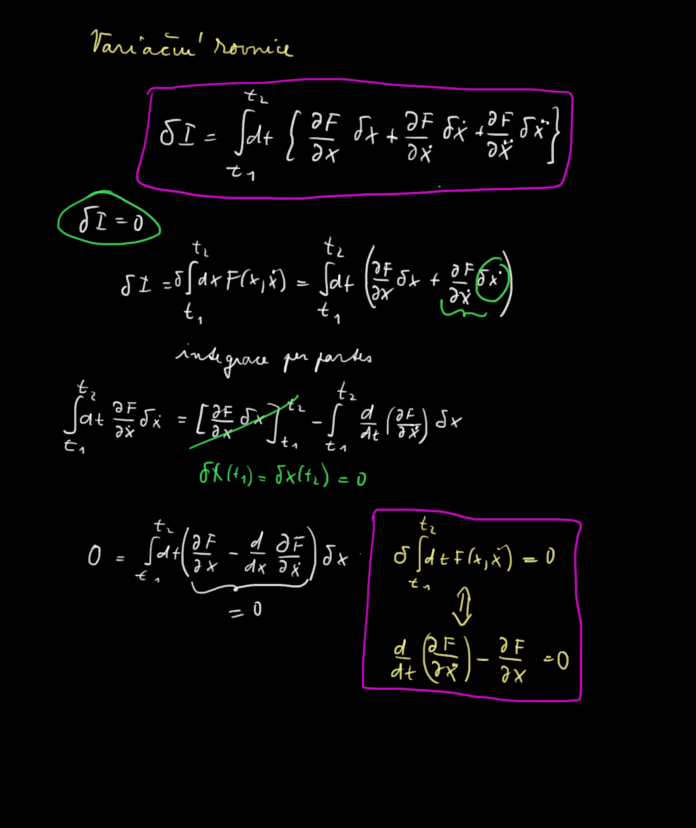 Variační rovnice
δI = ∫_{t₁}^{t₂} dt { ∂F/∂x δx + ∂F/∂ẋ δẋ + ∂F/∂ẍ δẍ }
δI = 0
δI = δ∫_{t₁}^{t₂} dx F(x,ẋ) = ∫_{t₁}^{t₂} dt ( ∂F/∂x δx + ∂F/∂ẋ δẋ )
integrace per partes
∫_{t₁}^{t₂} dt ∂F/∂ẋ δẋ = [ ∂F/∂x δx ]_{t₁}^{t₂} - ∫_{t₁}^{t₂} d/dt ( ∂F/∂ẋ ) δx
δx(t₁) = δx(t₂) = 0
0 = ∫_{t₁}^{t₂} dt ( ∂F/∂x - d/dx ∂F/∂ẋ ) δx
= 0
δ∫_{t₁}^{t₂} dt F(x,ẋ) = 0
⇕
d/dt ( ∂F/∂ẋ ) - ∂F/∂x = 0